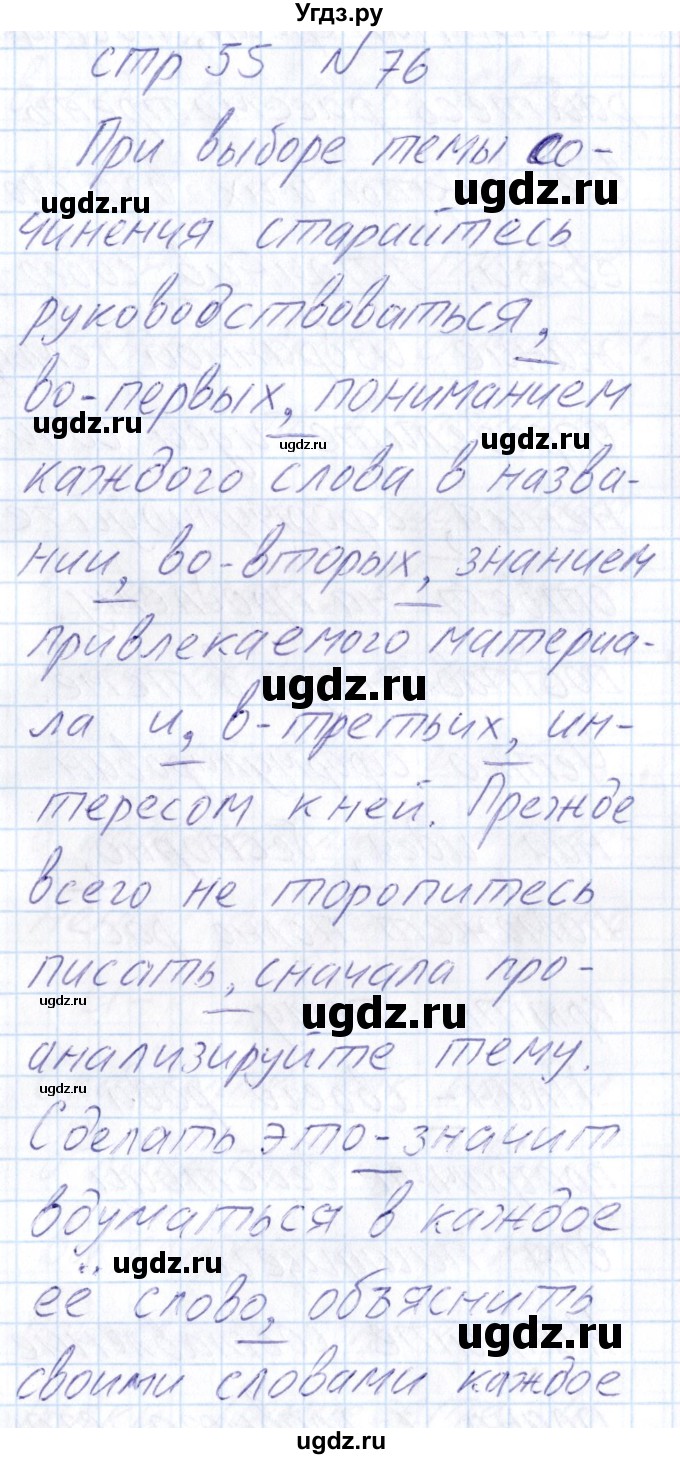 Угдз.ру
стр 55 N 76
При выборе темы со-
ugdz.ru
ugdz.ru
чинения старайтесь
руководствоваться,
во-первых, пониманием
ugdz.ru
ugdz.ru
ugdz.ru
каждого слова в назва-
нии, во-вторых, знанием
привлекаемого материа-
ugdz.ru
ла и, в-третьих, ин-
тересом к ней. Прежде
всего не торопитесь
писать, сначала про-
ugdz.ru
ugdz.ru
анализируйте тему.
ugdz.ru
Сделать это - значит
вдуматься в каждое
ugdz.ru
её слово, объяснить
ugdz.ru
своими словами каждое
ugdz.ru